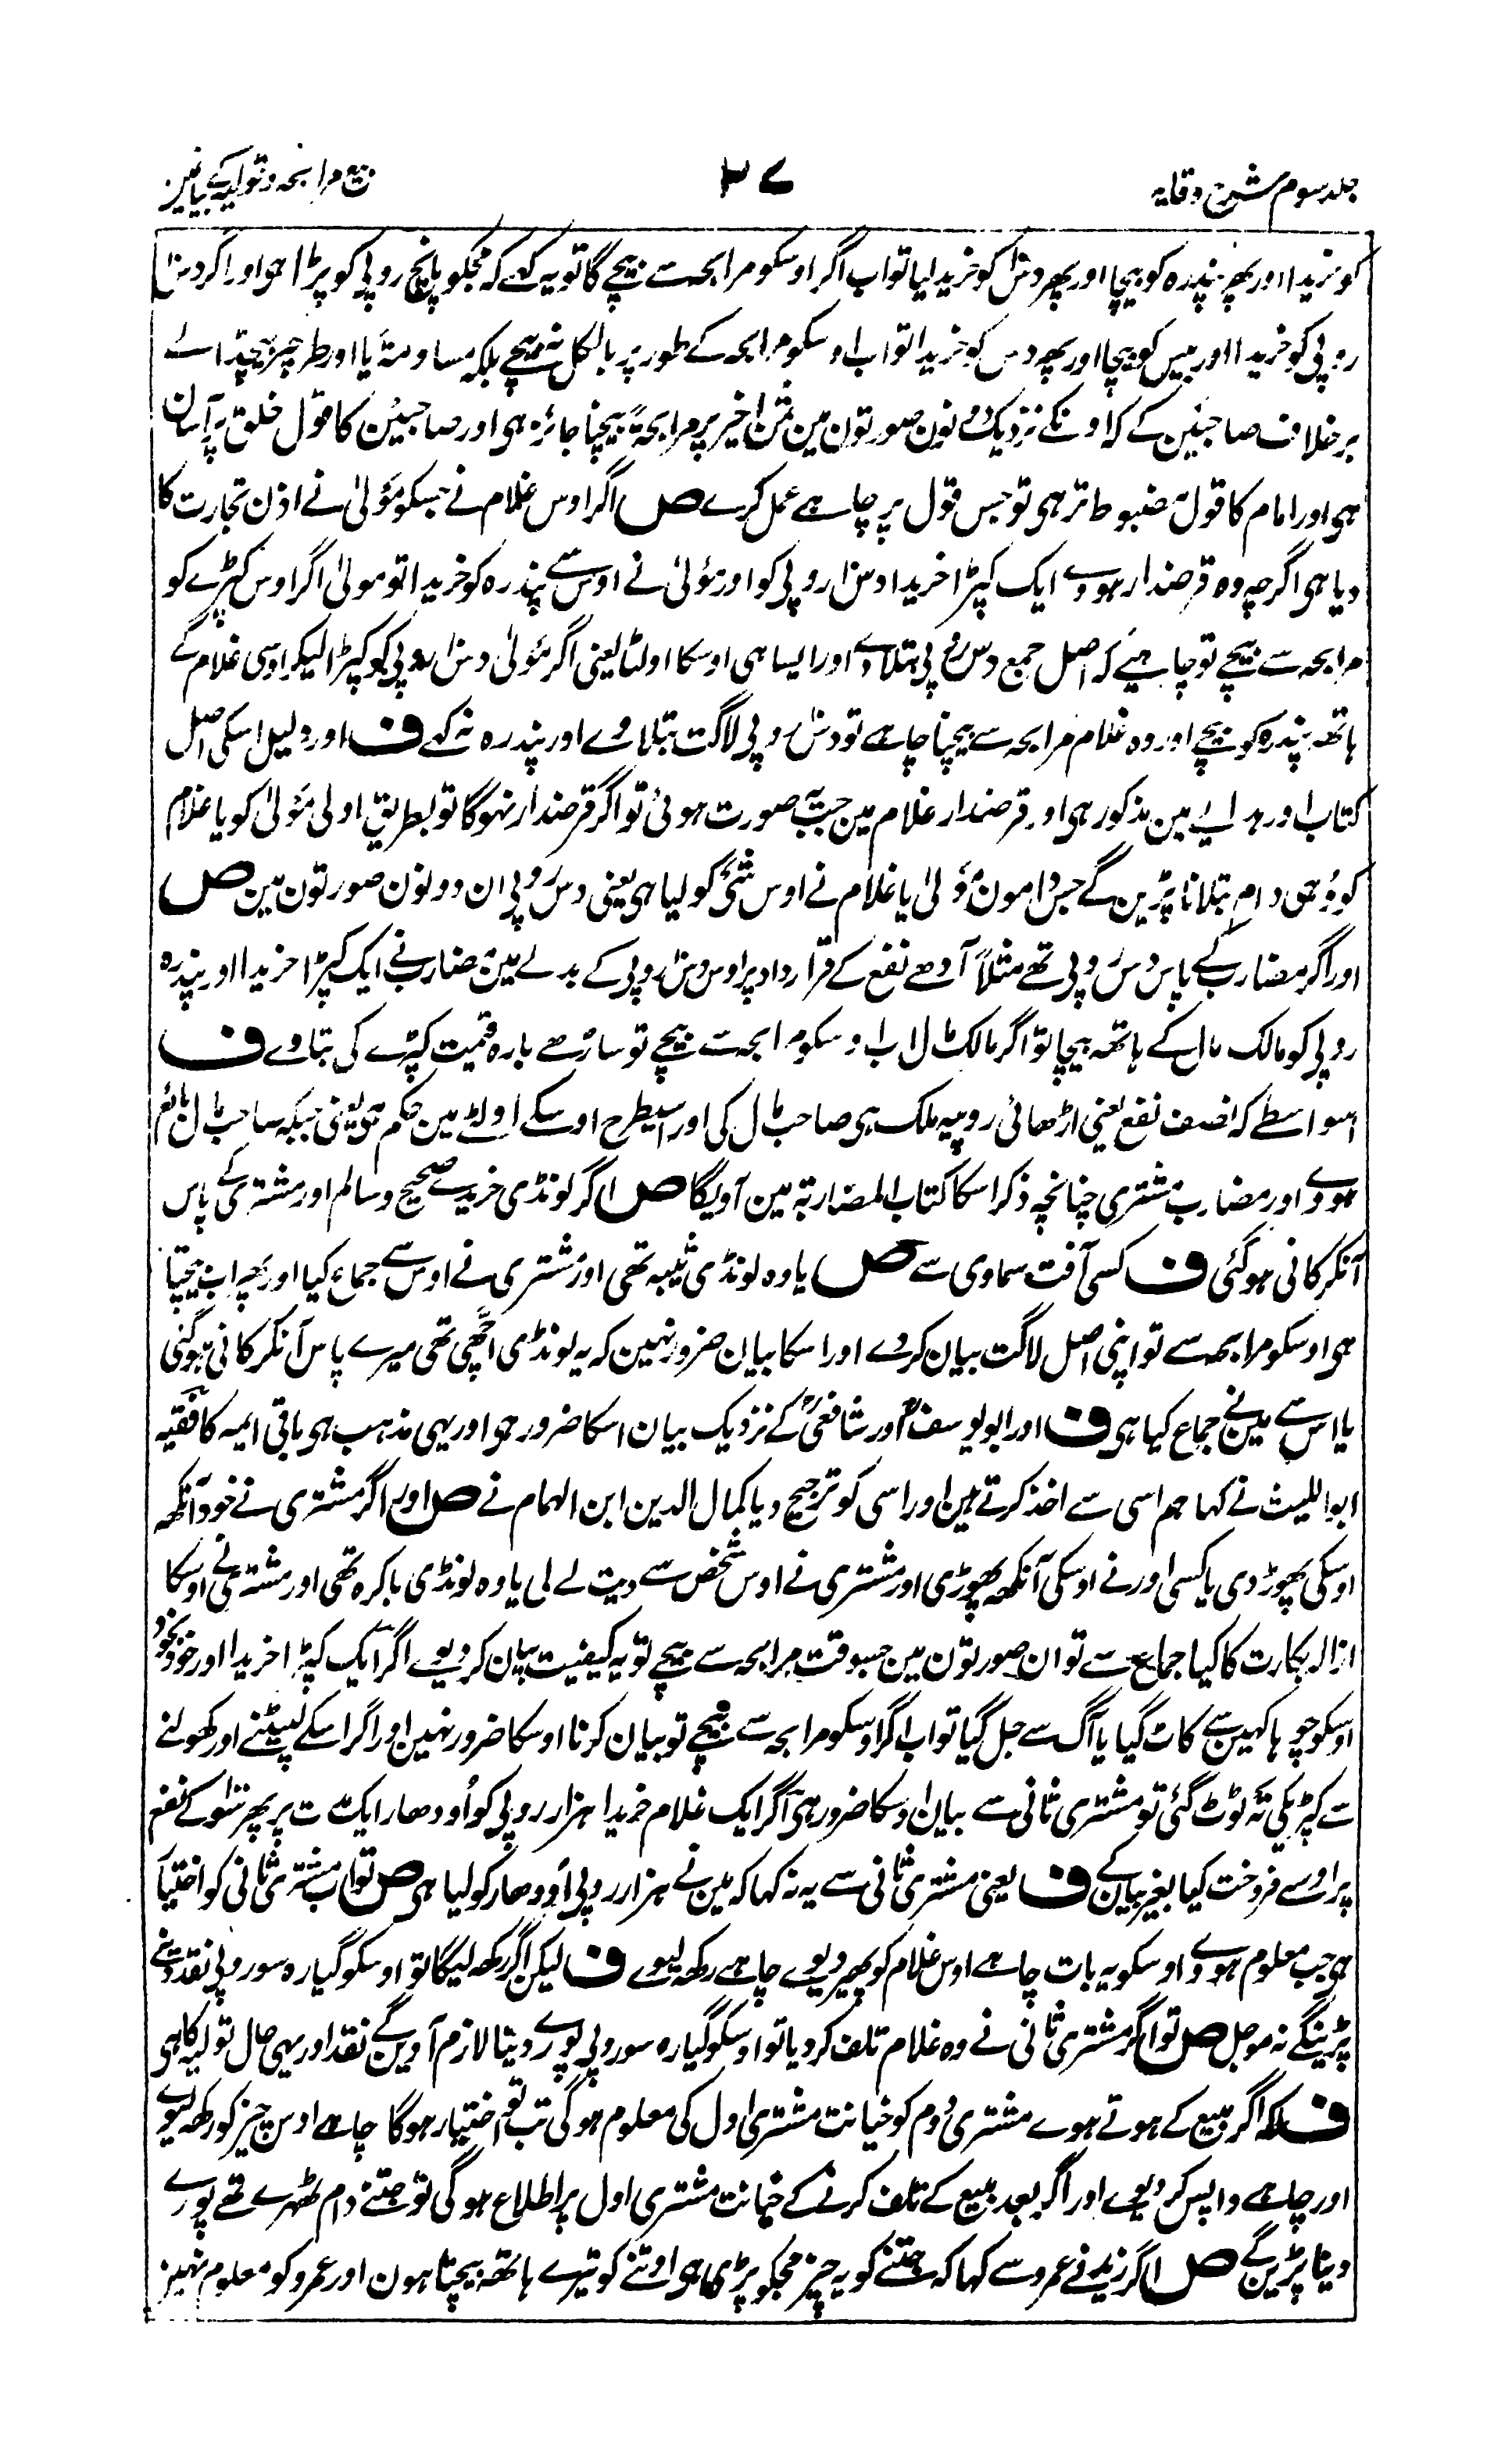 جلد سوم شرح وقایہ
۳۷
بیع مرابحہ و تولیہ کے بیانمین
کو خریدا اور پھر پندرہ کو بیچا اور پھر دس کو خرید لیا تو اب اگر اوسکو مرابحہ سے بیچے گا تو یہ کہے کہ مجکو پانچ روپی کو پڑا ہی اور اگر دس
روپی کو خریدا اور بیس کو بیچا اور پھر دس کو خریدا تو اب اوسکو مرابحہ کے طور پر بالکل نہ بیچے بلکہ مساومۃً یا اور طرح پر بیچڈالے
برخلاف صاحبین کے کہ اونکے نزدیک دونون صورتون مین ثمن اخیر پر مرابحۃً بیچنا جائز ہی اور صاحبین کا قول خلق پر آسان
ہی اور امام کا قول مضبوط تر ہی تو جس قول پر چاہے عمل کرے ص اگر اوس غلام نے جسکو مولیٰ نے اذن تجارت کا
دیا ہی اگرچہ وہ قرضدار ہووے ایک کپڑا خریدا دس روپی کو اور مولیٰ نے اوس سے پندرہ کو خریدا تو مولیٰ اگر اوس کپڑے کو
مرابحہ سے بیچے تو چاہیے کہ اصل جمع دس روپی بتلاوے اور ایسا ہی اوسکا اولٹا یعنی اگر مولیٰ دس روپی کو کپڑا لیکر اوسی غلام کے
ہاتھہ پندرہ کو بیچے اور وہ غلام مرابحہ سے بیچنا چاہے تو دس روپی لاگت بتلاوے اور پندرہ نہ کہے ف اور دلیل اسکی اصل
کتاب اور ہدایے مین مذکور ہی اور قرضدار غلام مین جب یہ صورت ہوئی تو اگر قرضدار نہوگا تو بطریق اولی مولیٰ کو یا غلام
کو وہی دام بتلانا پڑین گے جس دامون مولیٰ یا غلام نے اوس شئ کو لیا ہی یعنی دس روپی ان دونون صورتون مین ص
اور اگر مضارب کے پاس دس روپی تھے مثلاً آدھے نفع کے قرارداد پر اوس دس روپی کے بدلے مین مضارب نے ایک کپڑا خریدا اور پندرہ
روپی کو مالک مال کے ہاتھہ بیچا تو اگر مالک مال اب اوسکو مرابحہ سے بیچے تو ساڑھے بارہ قیمت کپڑے کی بتاوے ف
اسواسطے کہ نصف نفع یعنی اڑھائی روپیہ ملک ہی صاحب مال کی اور اسیطرح اوسکے اولٹے مین حکم ہی یعنی جبکہ صاحب مال بائع
ہووے اور مضارب مشتری چنانچہ ذکر اسکا کتاب المضاربۃ مین آویگا ص اگر لونڈی خریدے صحیح و سالم اور مشتری کے پاس
آنکر کانی ہوگئی ف کسی آفت سماوی سے ص یا وہ لونڈی ثیبہ تھی اور مشتری نے اوس سے جماع کیا اور پھر اب بیچتا
ہی اوسکو مرابحہ سے تو اپنی اصل لاگت بیان کردے اور اسکا بیان ضرور نہین کہ یہ لونڈی اچھی تھی میرے پاس آنکر کانی ہوگئی
یا اس سے مینے جماع کیا ہی ف اور ابو یوسف اور شافعی کے نزدیک بیان اسکا ضرور ہی اور یہی مذہب ہی باقی ایمہ کا فقیہ
ابو اللیث نے کہا ہم اسی سے اخذ کرتے ہین اور اسی کو ترجیح دیا کمال الدین ابن الہمام نے ص اور اگر مشتری نے خود آنکھہ
اوسکی پھوڑ دی یا کسی اور نے اوسکی آنکھہ پھوڑی اور مشتری نے اوس شخص سے دیت لے لی یا وہ لونڈی باکرہ تھی اور مشتری نے اوسکا
ازالہ بکارت کا کیا جماع سے تو ان صورتون مین جسوقت مرابحہ سے بیچے تو یہ کیفیت بیان کردیوے اگر ایک کپڑا خریدا اور خود بخود
اوسکو چوہا کہین سے کاٹ گیا یا آگ سے جل گیا تو اب اگر اوسکو مرابحہ سے بیچے تو بیان کرنا اوسکا ضرور نہین اور اگر اسکے لپیٹنے اور کھولنے
سے کپڑیکی تہ ٹوٹ گئی تو مشتری ثانی سے بیان اوسکا ضرور ہی اگر ایک غلام خریدا ہزار روپی کو اودھار ایک مدت پر پھر سو کے نفع
پر اوسے فروخت کیا بغیر بیان کے ف یعنی مشتری ثانی سے یہ نہ کہا کہ مین نے ہزار روپی اودھار کو لیا ہی ص تو اب مشتری ثانی کو اختیار
ہی جب معلوم ہووے اوسکو یہ بات چاہے اوس غلام کو پھیر دیوے چاہے رکھہ لیوے ف لیکن اگر رکھہ لیگا تو اوسکو گیارہ سو روپی نقد دینے
پڑینگے نہ موجل ص تو اگر مشتری ثانی نے وہ غلام تلف کردیا تو اوسکو گیارہ سو روپی پورے دینا لازم آوین گے نقد اور یہی حال تولیہ کا ہی
ف کہ اگر مبیع کے ہوتے ہوے مشتری دوم کو خیانت مشتری اول کی معلوم ہوگی تب تو اختیار ہوگا چاہے اوس چیز کو رکھہ لیوے
اور چاہے واپس کردیوے اور اگر بعد مبیع کے تلف کرنے کے خیانت مشتری اول پر اطلاع ہوگی تو جتنے دام ٹھہرے تھے پورے
دینا پڑین گے ص اگر زید نے عمرو سے کہا کہ جتنے کو یہ چیز مجکو پڑی ہی اوتنے کو تیرے ہاتھہ بیچتا ہون اور عمرو کو معلوم نہین